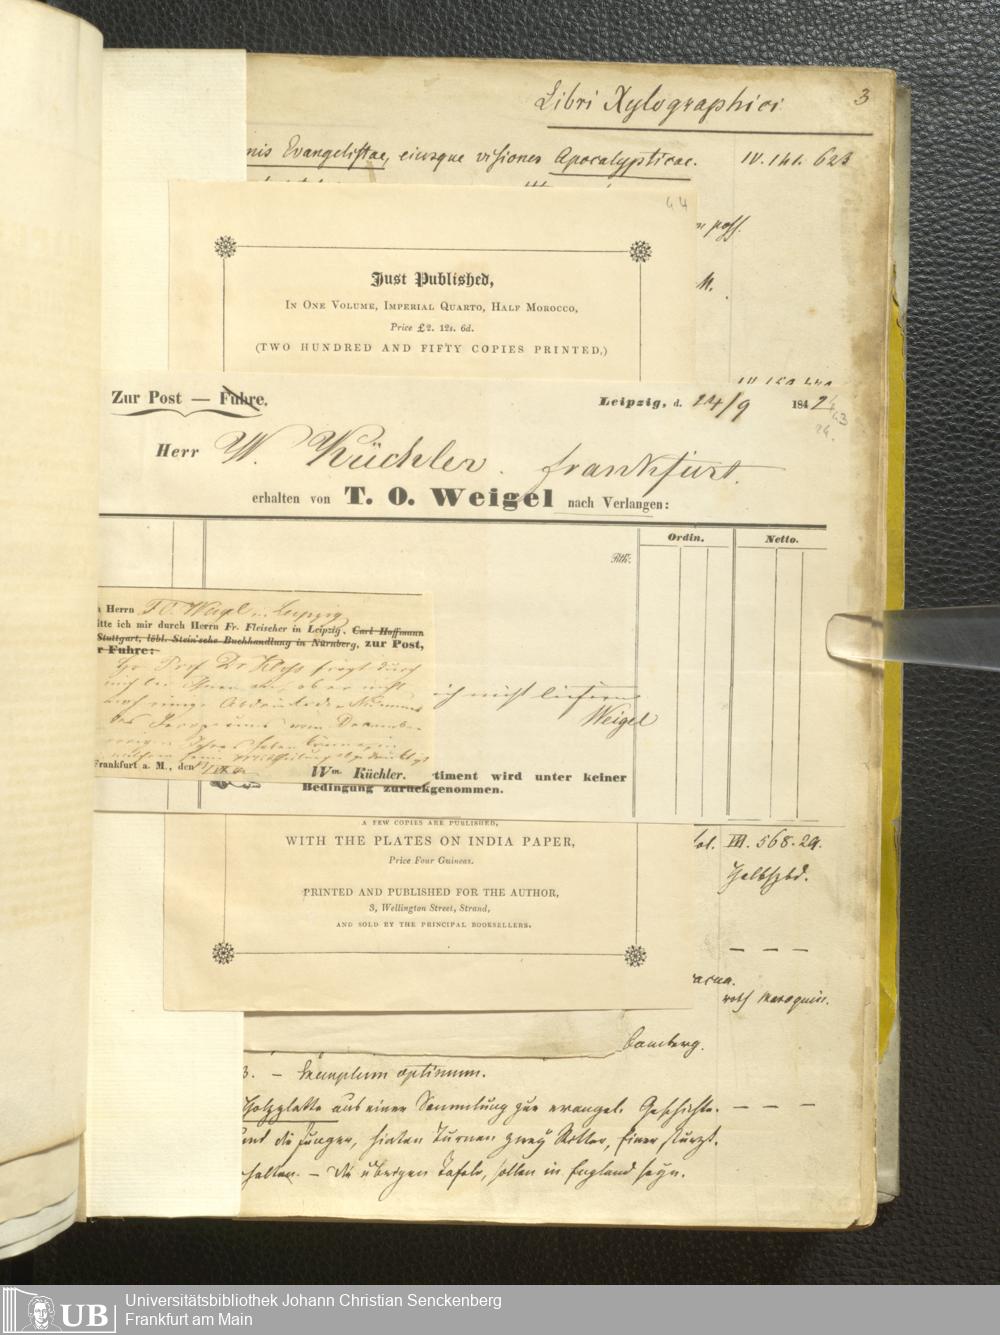 Libri Xylographici
3
nis Evangelistae, eiusque visiones Apocalypticae. IV. 141. 623
44
Just Published,
In One Volume, Imperial Quarto, Half Morocco,
Price £2. 12s. 6d.
(TWO HUNDRED AND FIFTY COPIES PRINTED.)
Zur Post — Fuhre.
Leipzig, d. 24/9 184
Herr W. Küchler. Frankfurt.
erhalten von T. O. Weigel nach Verlangen:
Ordin. Netto.
Rthr.
Herrn T O. Weigel in Leipzig
itte ich mir durch Herrn Fr. Fleischer in Leipzig, Carl Hoffmann
Stuttgart, löbl. Stein'sche Buchhandlung in Nürnberg, zur Post,
r Fuhre:
Hr Prof Dr Kloss fragt durch
mich bei Ihnen an, ob er nicht
noch einige Abdrücke der Nummer
des Serapeums vom December
vorigen Jahres haben könne, in
ich nicht liefern
Weigel
Frankfurt a. M., den
Wm. Küchler.
timent wird unter keiner
Bedingung zurückgenommen.
A FEW COPIES ARE PUBLISHED,
WITH THE PLATES ON INDIA PAPER,
Price Four Guineas.
PRINTED AND PUBLISHED FOR THE AUTHOR,
3, Wellington Street, Strand,
AND SOLD BY THE PRINCIPAL BOOKSELLERS.
fol. III. 568. 29.
Halbfzbd.
roth Maroquin.
Bamberg.
3. — Exemplum optimum.
Holzplatte aus einer Sammlung zur evangel. Geschichte. — — —
und die Junger, hinten Turnen zwey Ritter, einer sturzt.
halten. — Die übrigen Tafeln, sollen in England seyn.
UB
Universitätsbibliothek Johann Christian Senckenberg
Frankfurt am Main